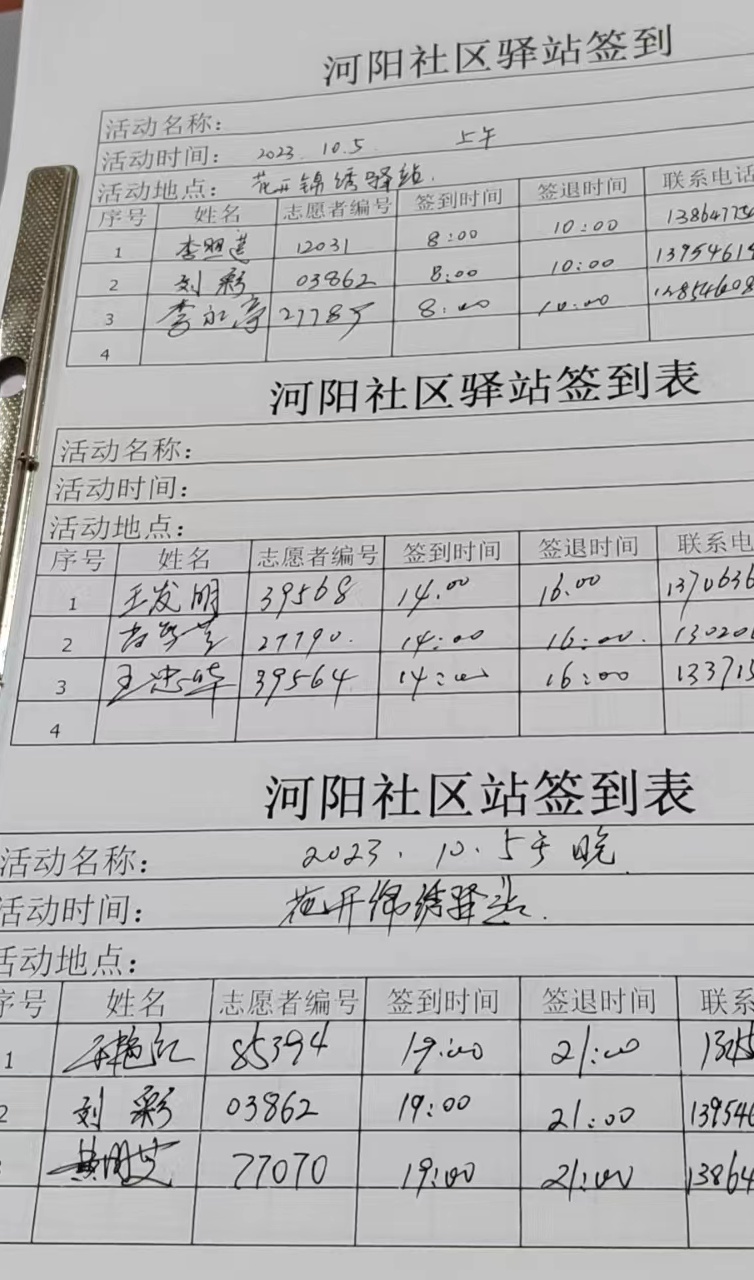 河阳社区驿站签到
活动名称：
活动时间： 2023. 10.5. 上午
活动地点： 花开锦绣驿站.
序号 姓名 志愿者编号 签到时间 签退时间 联系电话
1 李照莲 12031 8:00 10:00 13864773
2 刘彩 03862 8:00 10:00 13954614
3 李永亭 8:00 10:00
4
河阳社区驿站签到表
活动名称：
活动时间：
活动地点：
序号 姓名 志愿者编号 签到时间 签退时间 联系电
1 王发明 39568 14.00 16.00 1370636
2 27790. 14:00 16:00. 130201
3 王忠华 39564 14:00 16:00 133715
4
河阳社区站签到表
活动名称： 2023. 10. 5号 晚
活动时间： 花开锦绣驿站.
活动地点：
序号 姓名 志愿者编号 签到时间 签退时间 联系
1 85394 19:00 21:00
2 刘彩 03862 19:00 21:00 139546
77070 19:00 21:00 13864